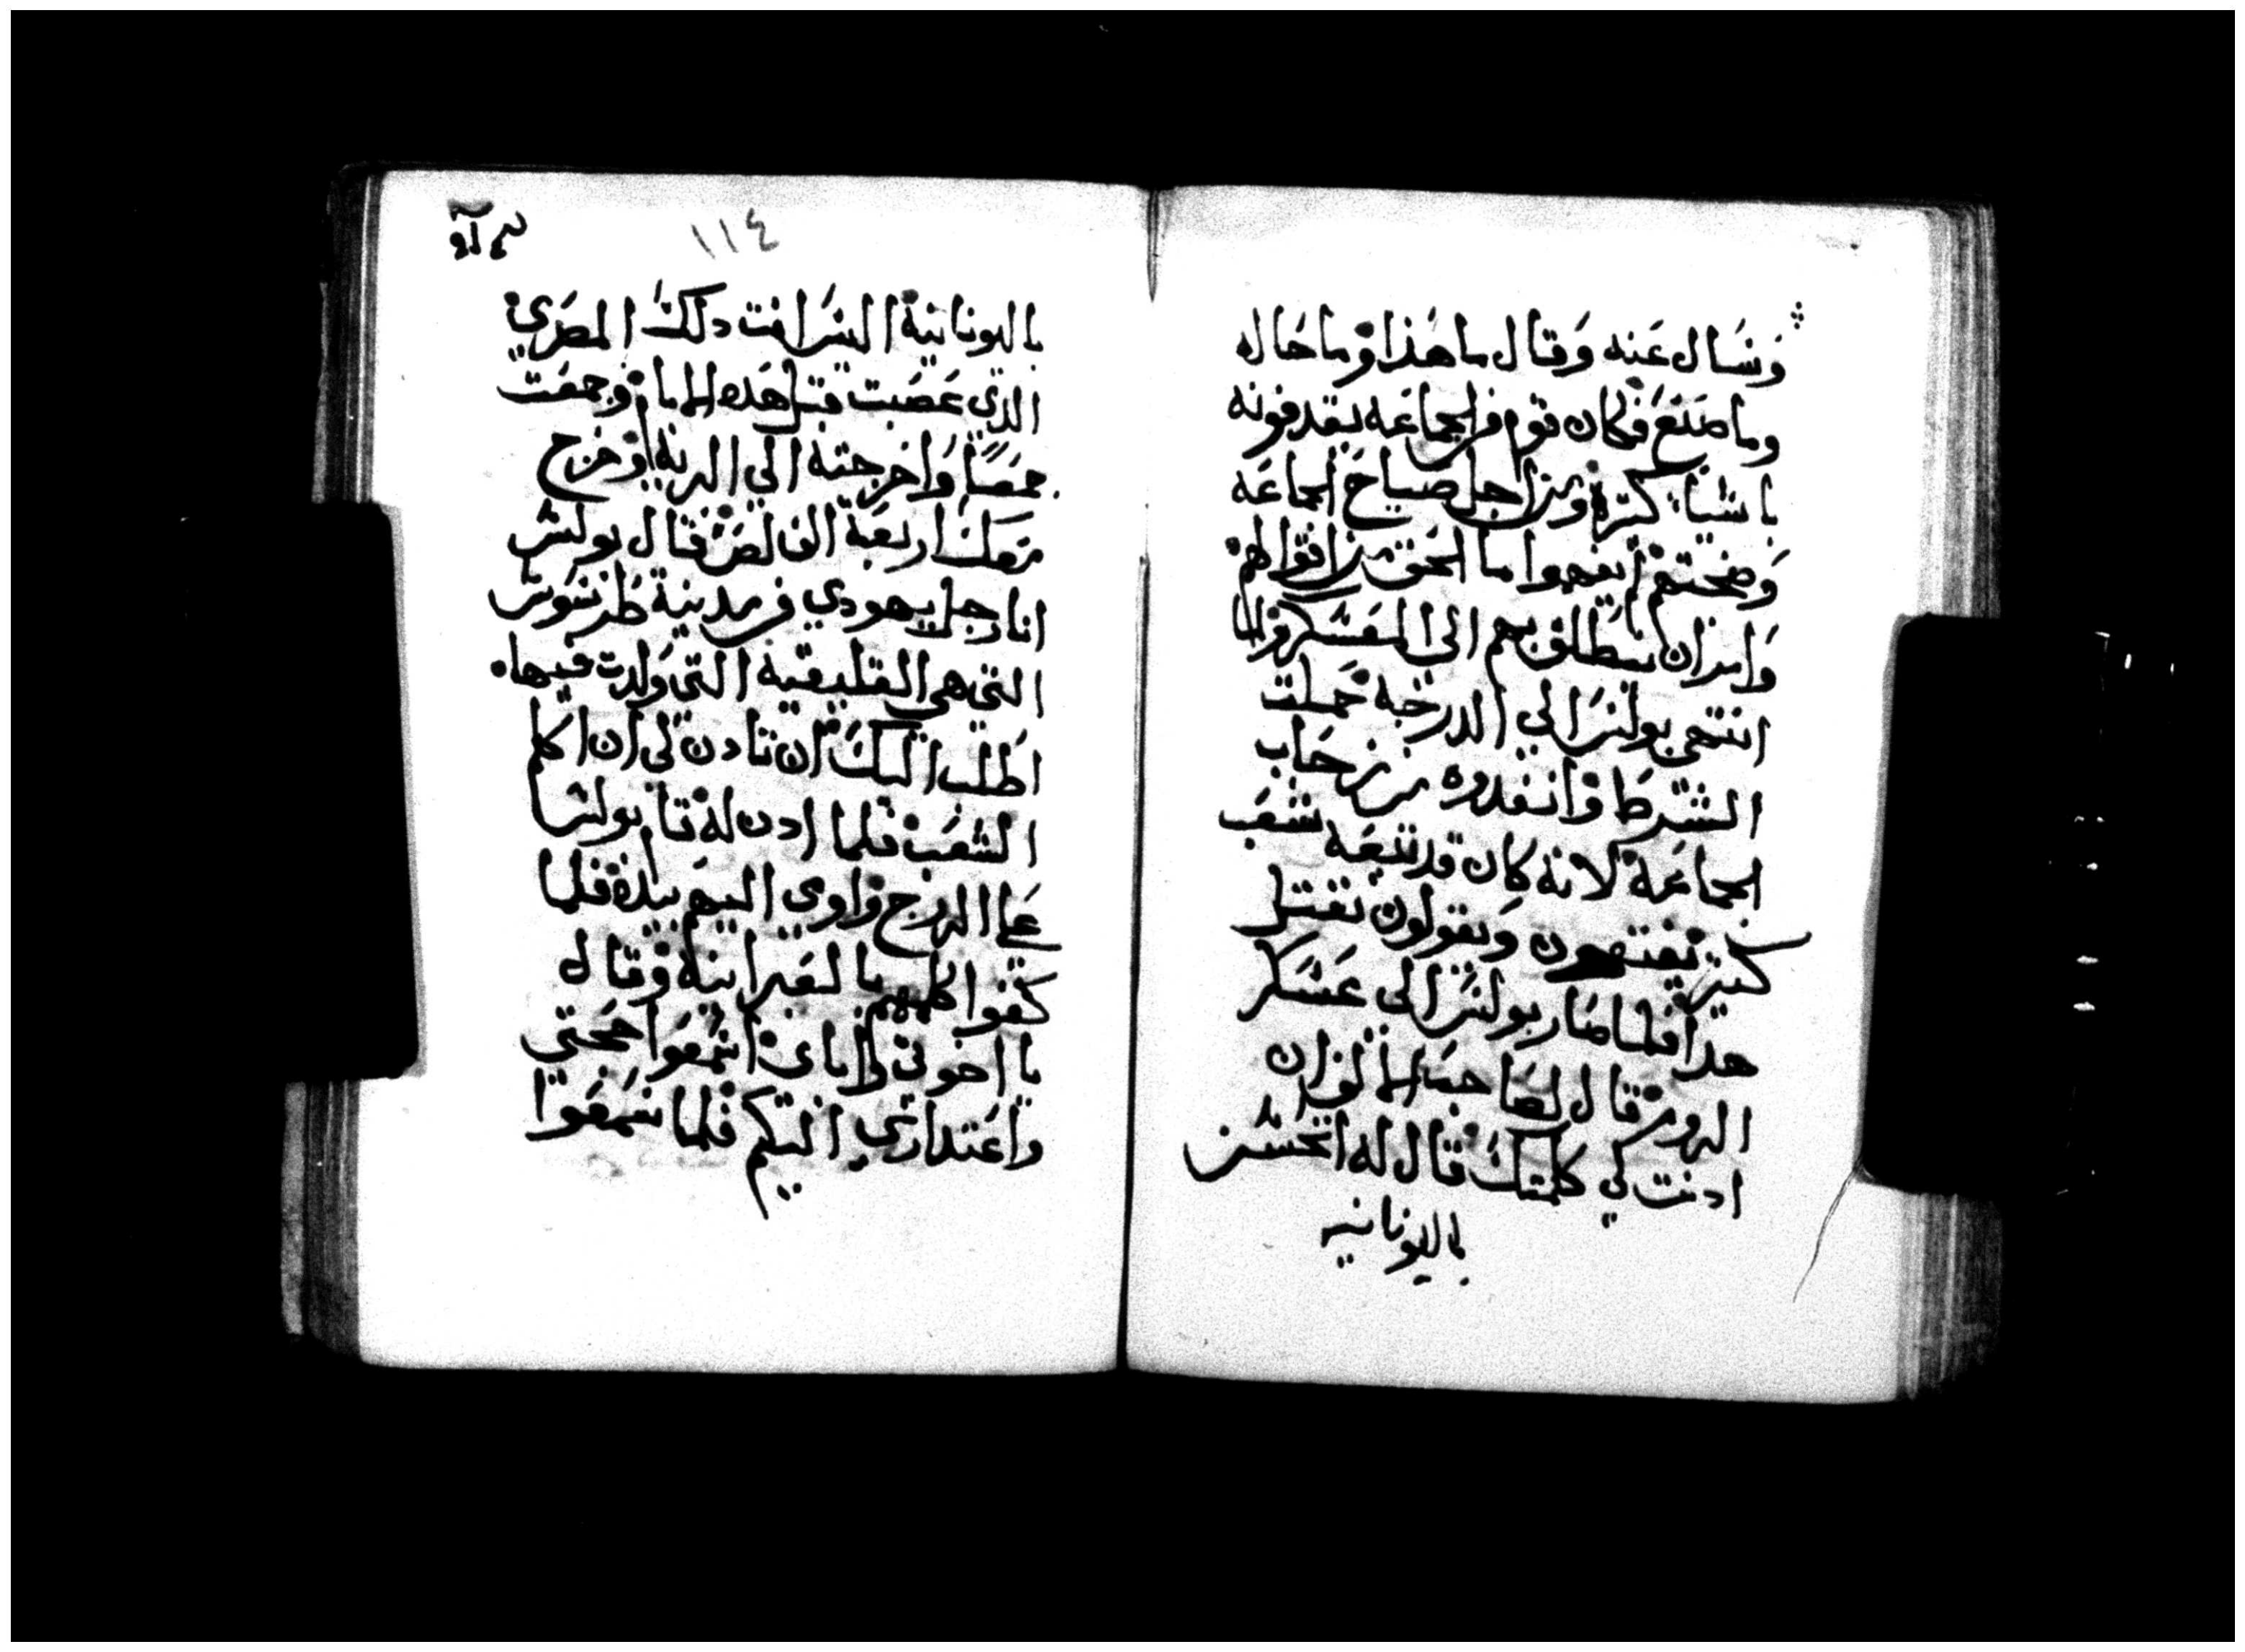 وَسَال عَنه وَقال ما هَذا وما حَاله
وما صَنَعَ فكان قوم من الجماعَه يقدفونه
باشياء كثيرة ومن اجل صياحَ الجماعَه
وَضجتهم لم يفهموا ما الحق من اقوالهم
وَامر ان ينطلق بهم الى المعَسكر فلما
انتهى بولس الي الدرجة حملته
الشرط وانقدوه من زحَاب
الجماعَة لانه كان قد تبعَه شعَب
كثير يفتهمون ويقولون نقتل
هدا فلما صَار بولس الى عَسَكر
الروم قال لصَاحب الالف ان
ادنت لي كلمتك قال له اتحَسن
باليونانيه
١١٤
باليونانية اليسَ انت دلك المصَري
الدي عَصَيت قبل هده الايام وجمعَت
جمعًا وَاخرجته الي البرية وخرج
معَك اربعَة الف لص قال بولس
انا رجل يهودي من مدينة طرسَوس
التي هي القليقية التي ولدت فيها
اطلب اليك ان تادن لي ان اكلم
الشعَب فلما ادن له قام بولس
عَلى الدرج واوي اليهم بيده فلما
كفوا كلمهم بالعَبرانية وقال
يا اخوتي واباي اسمعَوا حجتي
واعَتداري اليكم فلما سَمعَوا